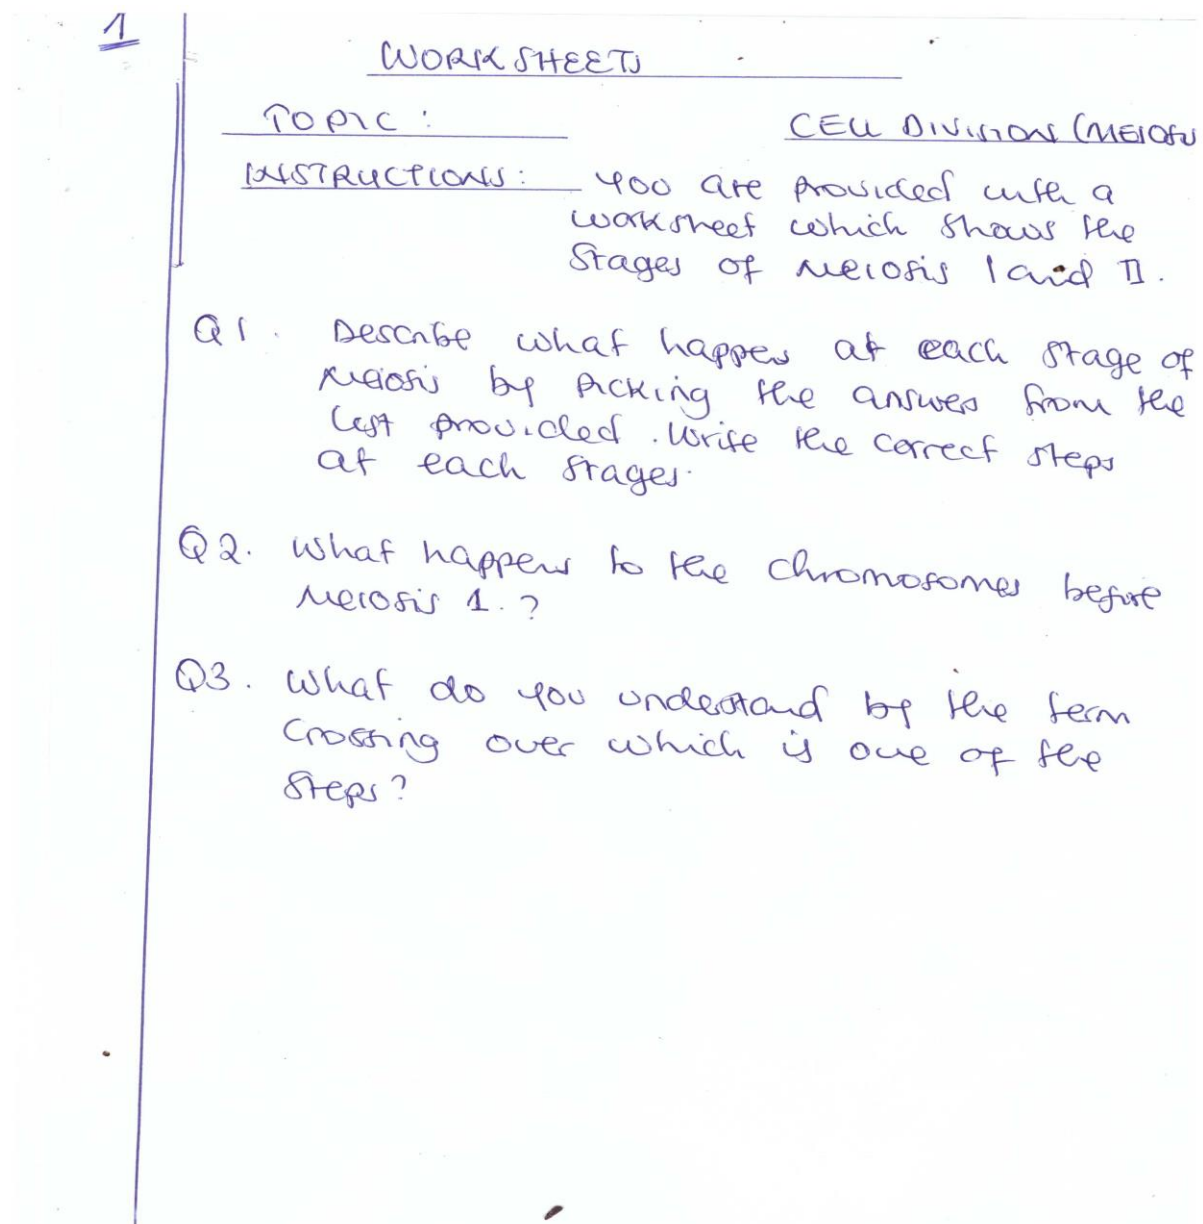 1
WORKSHEETS
TOPIC: CELL DIVISION (MEIOSIS
INSTRUCTIONS: you are provided with a
worksheet which shows the
stages of meiosis 1 and II.
Q1. Describe what happens at each stage of
meiosis by picking the answers from the
list provided. Write the correct steps
at each stages.
Q2. What happens to the chromosomes before
Meiosis 1.?
Q3. What do you understand by the term
Crossing over which is one of the
steps?